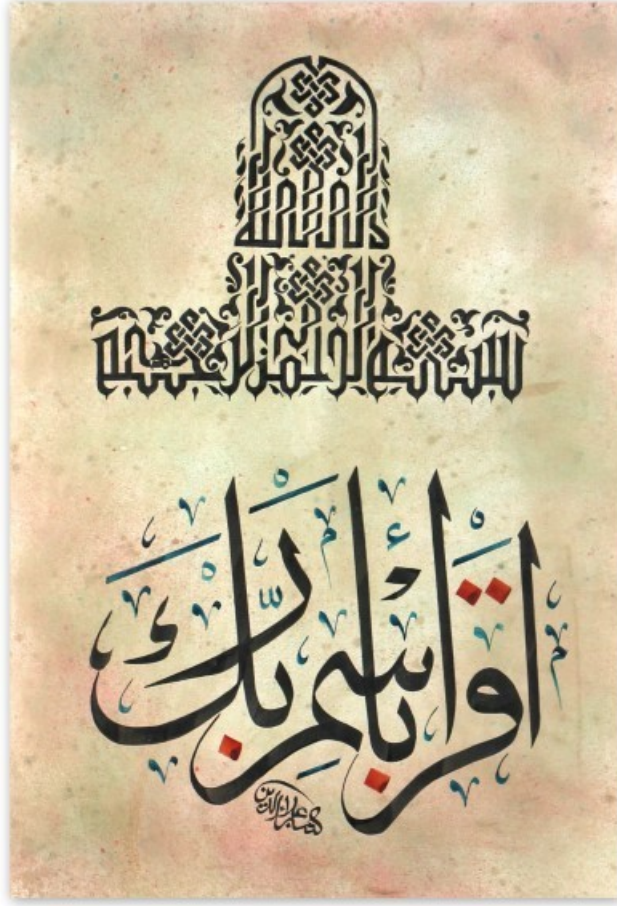 بسم الله الرحمن الرحيم
ٱقْرَأْ بِٱسْمِ رَبِّكَ